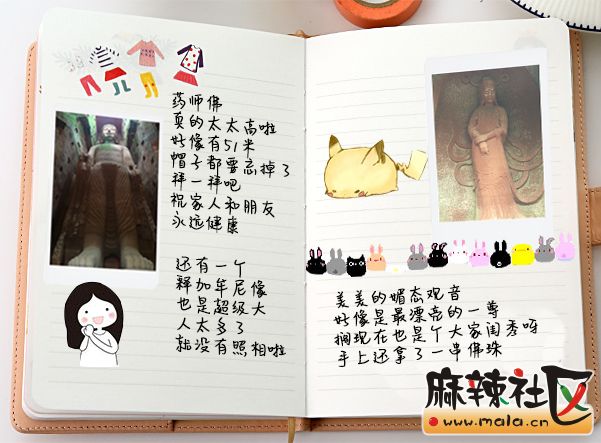 药师佛
真的太太高啦
好像有51米
帽子都要忘掉了
拜一拜吧
祝家人和朋友
永远健康
还有一个
释加牟尼像
也是超级大
人太多了
就没有照相啦
美美的媚态观音
好像是最漂亮的一尊
搁现在也是个大家闺秀呀
手上还拿了一串佛珠
麻辣社区
www.mala.cn